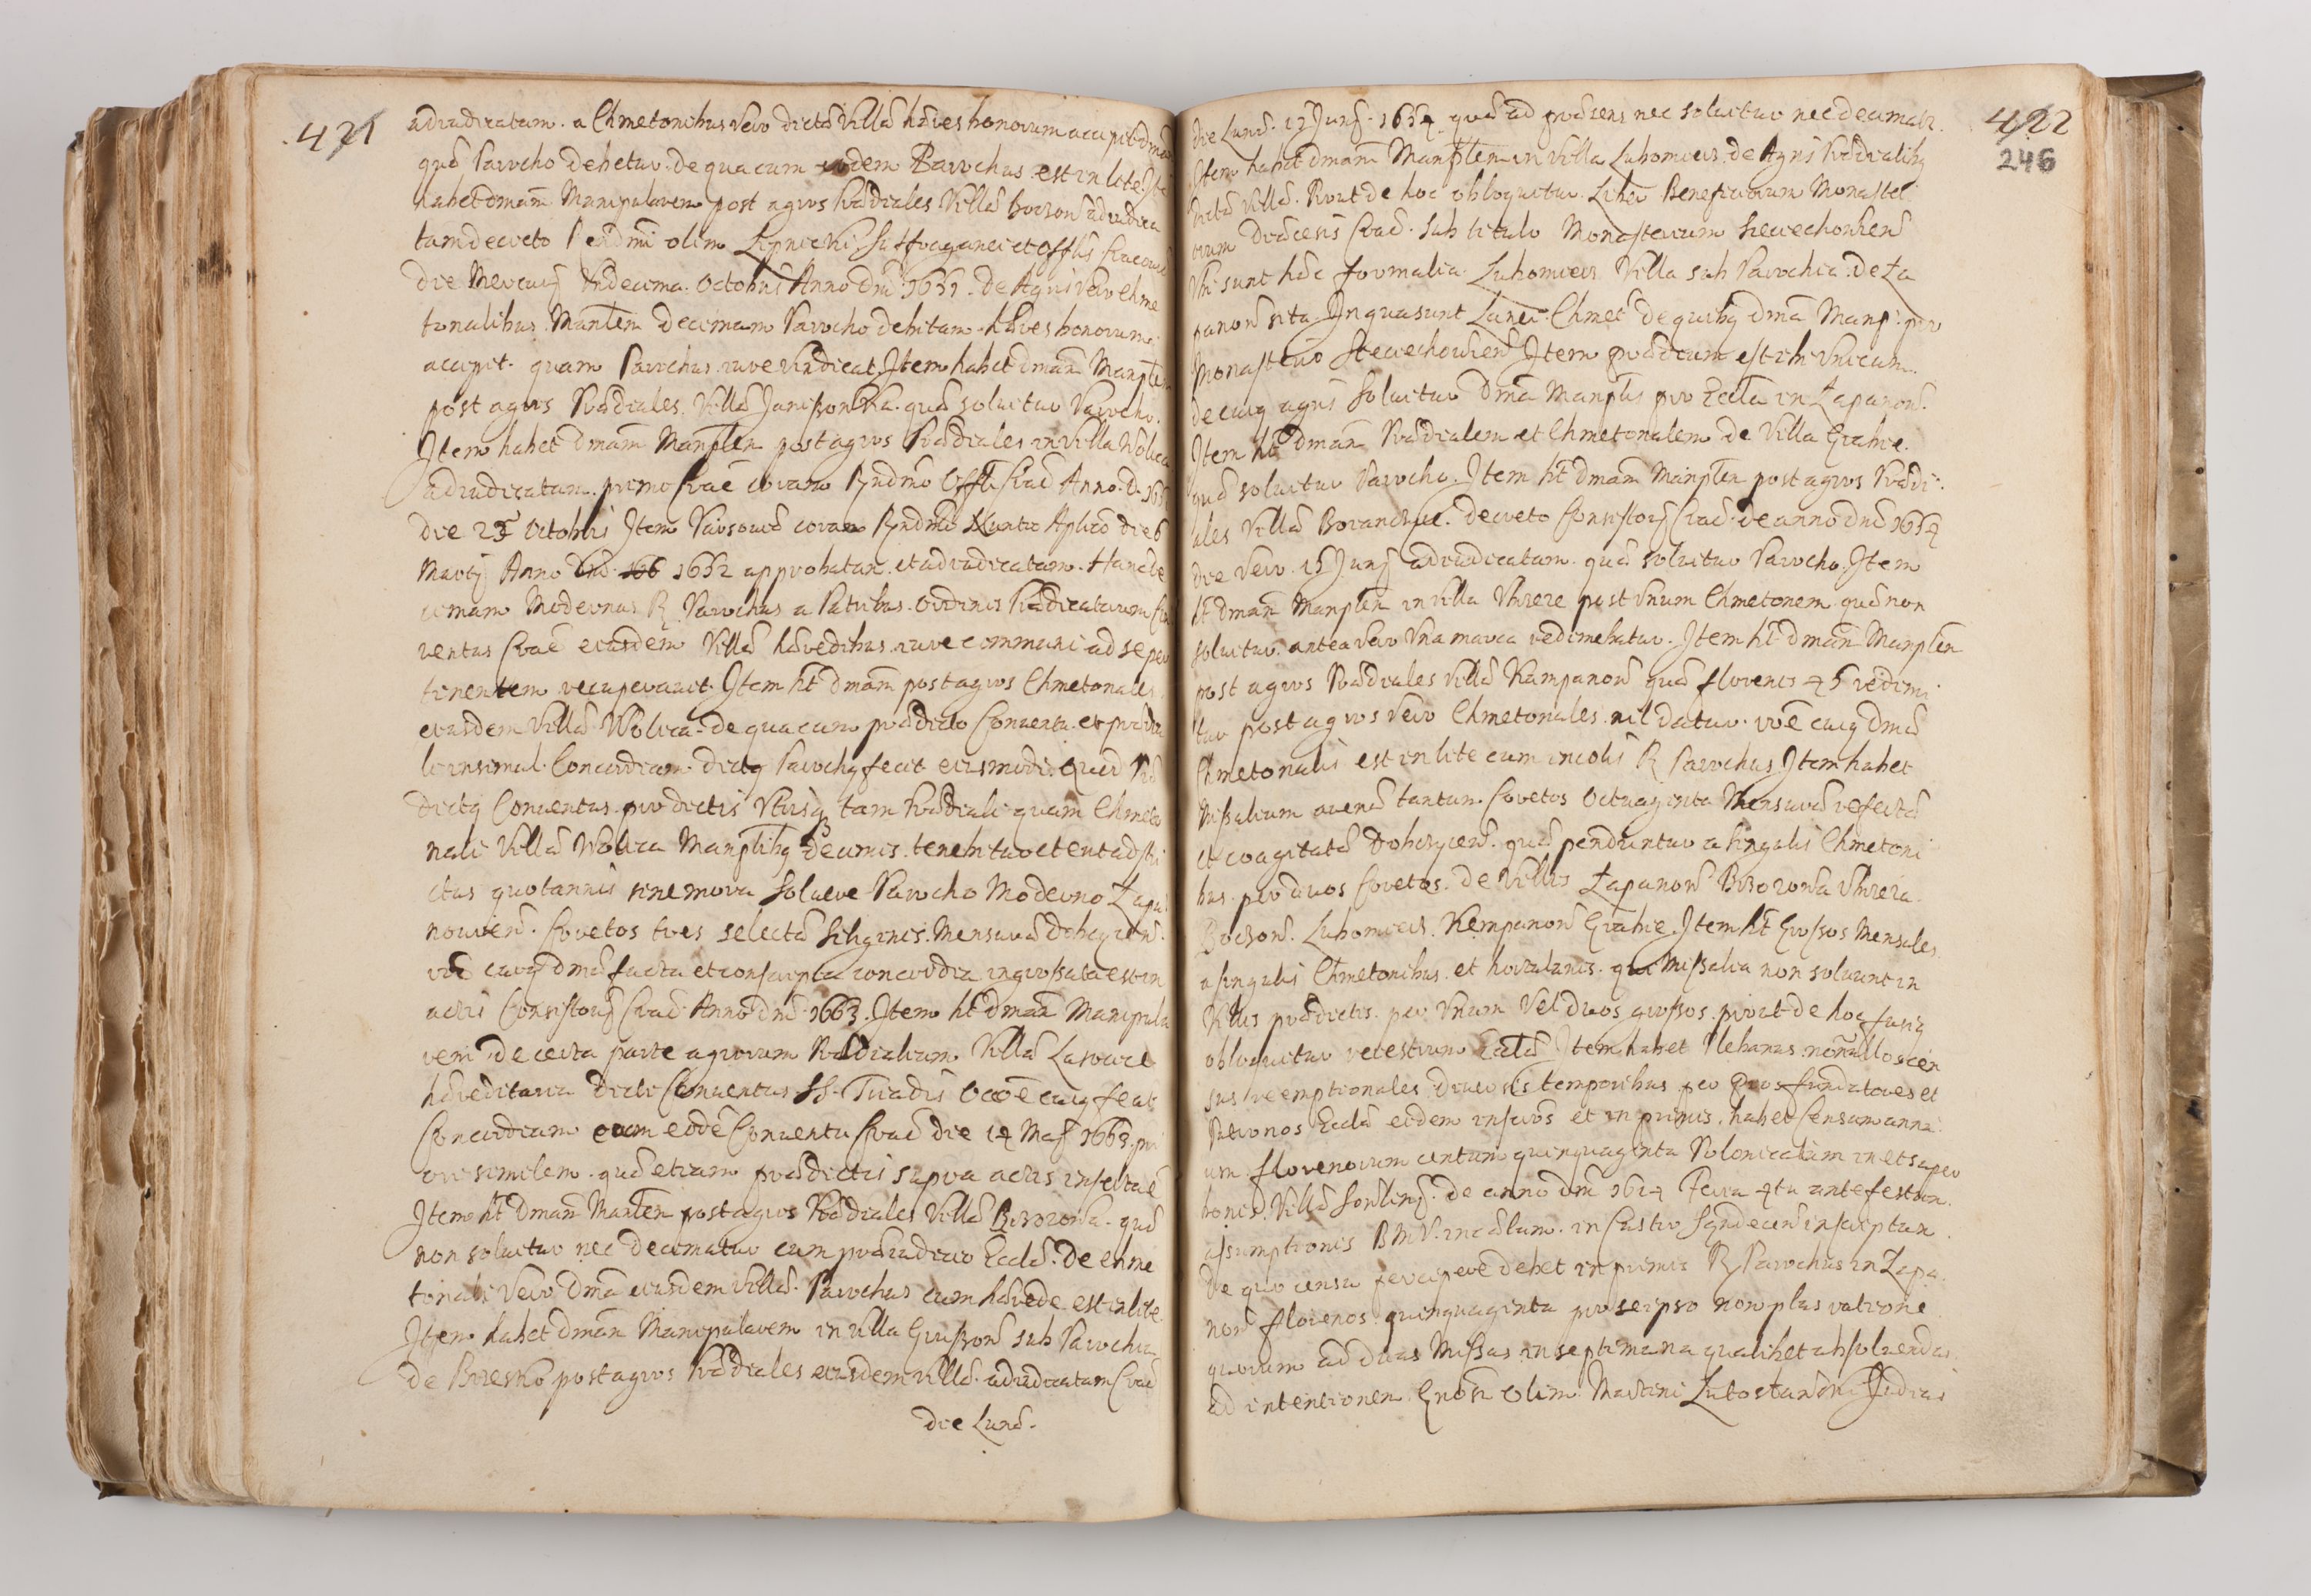 421
adiudicatam. a Chmetonibus vero dictæ Villæ hæres bonorum accipit dmã
quæ Parocho debetur. de qua cum eodem Parochus est in lite. Ite
habet dmam Manipularem post agros Prædiales Villæ Boczow adiudica
tam decreto Rendmi olim Lipnicki Suffraganei et Offlis Cracovien
die Mercurij Vndecima Octobris Anno Dni 1651. De Agris vero Chme
tonalibus Manlem Decimam Parocho debitam hæres bonorum
accipit. quam Parochus iure vindicat. Item habet dmam Manplem
post agros Prædiales Villæ Janissowka. quæ soluitur Parocho.
Item habet dmam Manplem post agros Prædiales in Villa Wolica
adiudicatam. primo Crac coram Rndmo Offli Crac Anno D. 165
die 23 Octobris Item Varsouiæ coram Rndmo Nuntio Aplico die 6
Martij Anno Dni 166 1652 approbatam et adiudicatam. Hanc de
cimam Modernus R Parochus a Patribus Ordinis Prædicatorum Con
ventus Crac eiusdem Villæ hæredibus iure communi ad se per
tinentem recuperauit. Item ht dmam post agros Chmetonales
eiusdem Villæ Wolica. de qua cum prædicto Conventu et prædia
li insimul Concordiam dictq Parochq fecit eiusmodi. Quod Præ
dictq Conuentus pro dictis Vtrisq tam Prædiali quam Chmeto
nali Villæ Wolica Manplibq Decimis. tenebitur et erit adstri
ctus quotannis sine mora soluere Parocho Moderno Lapa
nouien. Coretos tres selectæ Siliginis Mensuræ Dobczycen.
roe cuiq dmæ facta et conscripta concordia ingrossata est in
actis Consistorij Crac Anno Dni 1663. Item ht dmam Manipula
rem de certa parte agrorum Prædialium Villæ Lasowice
hæreditaria dicti Conuentus SS. Triadis Occoe cuiq fecit
Concordiam cum eodē Conuentu Crac die 14 Maij 1663. pri
ori similem. quæ etiam prædictis supra actis inserta ē
Item ht Dmam Manlem post agros Prædiales Villæ Brzozowa. quæ
non soluitur nec decimatur cum præiudicio Ecclæ. De Chme
tonali Vero Dma eiusdem Villæ. Parochus cum hærede est in lite.
Item habet dmam Manipularem in Villa Grussow sub Parochia
de Brzesko post agros Prædiales eiusdem Villæ. adiudicatam Crac
die Lunæ.
422
246
die Lunæ. 15 Junij. 1654. quæ ad præsens nec soluitur nec decimatr.
Item habet dmam Manplem in Villa Lubomierz. de Agris Prædialibq
dictæ Villæ. Prout de hoc obloquitur. Liber Beneficiorum Monaste
riorum Diæcesis Crac. sub titulo Monasterium Sieciechouien
Vbi sunt hæc formalia Lubomierz Villa sub Parochia de La
panow sita. In qua sunt Lanei Chmet de quibq dma Manp. pro
Monasterio Sieciechouien Item prædium est ibi vnicum.
de cuiq agris soluitur Dma Manplis pro Eccla in Lapanow.
Item ht dmam Prædialem et Chmetonalem de Villa Grabie.
quæ soluitur Parocho. Item ht dmam Manplem post agros Prædi
ales Villæ Boranczyce. Decreto Consistorij Crac. de anno dni 1654
die vero 15 Junij adiudicatam. quæ soluitur Parocho. Item
ht dmam Manplem in villa Vbrzez post vnum Chmetonem quæ non
soluitur. antea vero vna marca redimebatur. Item ht dmam Manplem
post agros Prædiales Villæ Kampanow quæ florenis 45 redimi
tur post agros vero Chmetonales nil datur. roē cuiq dmæ
Chmetonalis est in lite cum incolis R Parochus. Item habet
Missalium auenæ tantum. Coretos Octuaginta Mensuræ refertæ
et coagitatæ Dobczycen. quæ penduntur a singulis Chmetoni
bus. per duos Coretos. de Villis Lapanow Brzozowa Vbrzeza
Boczow. Lubomierz. Kempanow Grabie. Item ht Grossos Mensales.
a singulis Chmetonibus. et hortulanis. qui Missalia non soluunt in
Villis prædictis. per Vnum Vel duos grossos. prout de hoc fusiq
obloquitur retestrum Ecclæ Item habet Plebanus nōnullos cen
sus reemptionales diuersis temporibus per pios fundatores et
Patronos Ecclæ eidem inscros et in primis. habet Censum annu
um. florenorum centum quinquaginta Polonicalium in et super
bonis. Villæ Sowlinij. de anno dni 1624 Feria 4ta ante festum
assumptionis BMV. in cælum. in Castro Sandecen inscriptum.
de quo censu percipere debet in primis R Parochus in Lapa
now florenos quinquaginta pro seipso non plus ratione
quorum ad duas Missas in septimana qualibet absoluendas.
ad intentionem Gnosi olim Martini Lutostanski Judicis